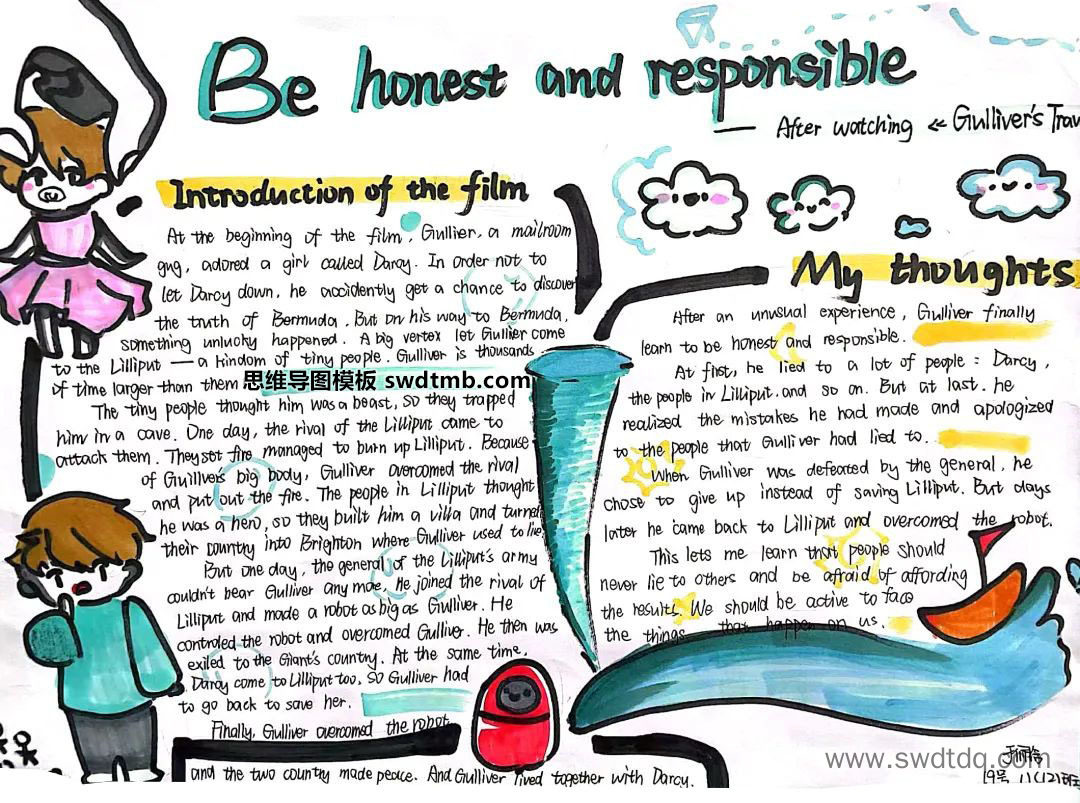 Be honest and responsible
— After watching 《Gulliver's Trav
Introduction of the film
At the beginning of the film, Gullier, a mailroom
guy, adored a girl called Darcy. In order not to
let Darcy down, he accidently get a chance to discover
the truth of Bermuda. But on his way to Bermuda,
something unlucky happened. A big vertex let Gullier come
to the Lilliput — a kindom of tiny people. Gulliver is thousands
of time larger than them
思维导图模板 swdtmb.com
The tiny people thought him was a beast, so they trapped
him in a cave. One day, the rival of the Lilliput came to
attack them. They set fire managed to burn up Lilliput. Because
of Guilliver's big body, Gulliver overcomed the rival
and put out the fire. The people in Lilliput thought
he was a hero, so they built him a villa and turned
their country into Brighton where Gulliver used to lie
But one day, the general of the Lilliput's army
couldn't bear Gulliver any moe. He joined the rival of
Lilliput and made a robot as big as Gulliver. He
controled the robot and overcomed Gulliver. He then was
exiled to the Giant's country. At the same time,
Darcy come to Lilliput too, so Gulliver had
to go back to save her.
Finally, Gulliver overcomed the robot
and the two country made peace. And Gulliver lived together with Darcy.
My thoughts
After an unusual experience, Gulliver finally
learn to be honest and responsible.
At first, he lied to a lot of people: Darcy,
the people in Lilliput and so on. But at last, he
realized the mistakes he had made and apologized
to the people that Gulliver had lied to.
When Gulliver was defeated by the general, he
chose to give up instead of saving Lilliput. But days
later he came back to Lilliput and overcomed the robot.
This lets me learn that people should
never lie to others and be afraid of affording
the results. We should be active to face
the things that happen on us.
www.swdtdq.com
19号